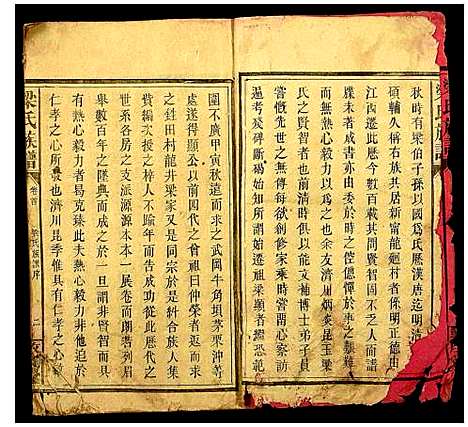 梁氏族譜
秋時有梁伯子孫以國為氏歷漢唐迄明清
碩輔久稱右族其居新富龍廻村者係明正德由
江西遷此歷今數百載其間賢智固不乏人而譜
牒未著成書亦由委於時之倥傯憚於事之艱難
而無熱心毅力以為之也余友濟川炳炎昆玉梁
氏之賢者也初濟川以文補博士弟子員
嘗慨先世之無傳每欲創修家乘時嘗關心察訪
遍考殘碑斷碣始訪悉始遷祖梁顯者繼恐範
圍不廣甲寅秋遠而求之武岡牛角壩茅栗沖等
處近而求之
得順公系以前四代之曾祖曰仲榮者遂以
之鉎田村龍井梁家又是同宗於是糾合族人集
貲編次授之梓人不踰年而告成功從此歷代之
世系各房之支派源源本本一展卷而朗若列眉
舉數百年之墜典而成之於一旦謂非賢智而具
有熱心毅力者曷克臻此然其熱心毅力他迫於
仁孝之心所致也濟川昆季惟具有仁孝之心故
梁氏族譜
卷首
梁氏族譜序
二